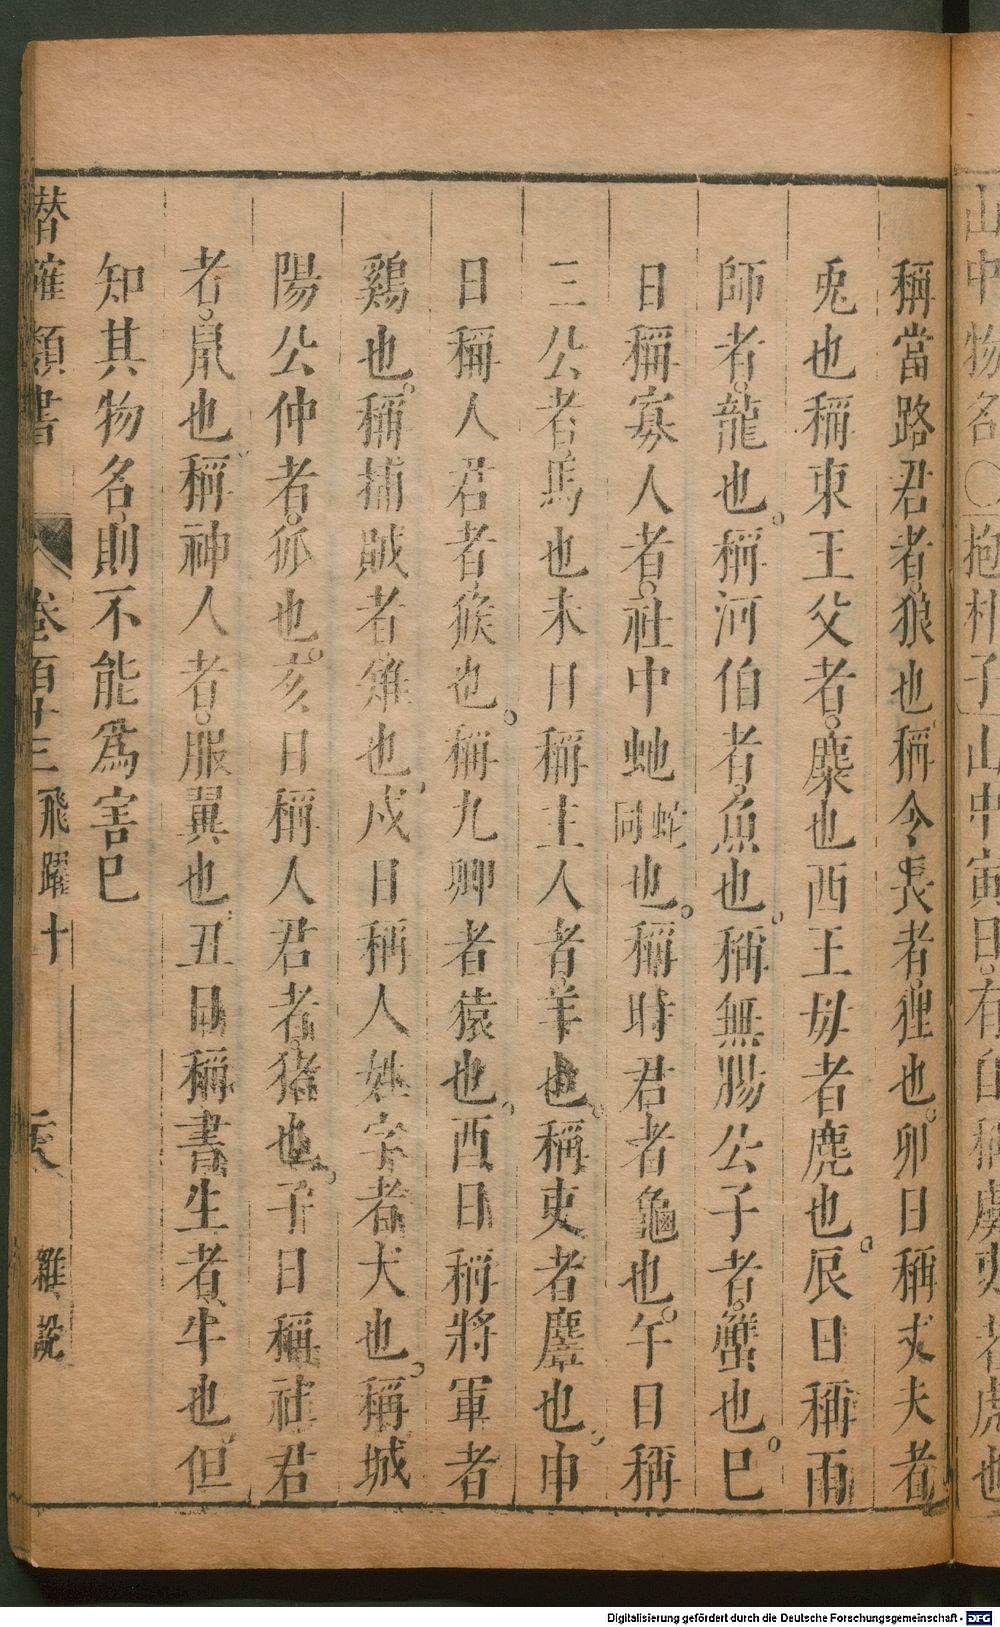 山中物名○抱朴子山中寅日有自稱虞吏者虎也
稱當路君者狼也稱令長者狸也卯日稱丈夫者
兎也稱東王父者麋也西王母者鹿也辰日稱雨
師者龍也稱河伯者魚也稱無腸公子者蟹也巳
日稱寡人者社中虵蛇同也稱時君者龜也午日稱
三公者馬也未日稱主人者羊也稱吏者麞也申
日稱人君者猴也稱九卿者猿也酉日稱將軍者
鷄也稱捕賊者雉也戌日稱人姓字者犬也稱城
陽公仲者狐也亥日稱人君者猪也子日稱社君
者鼠也稱神人者服翼也丑日稱書生者牛也但
知其物名則不能爲害巳
潜確類書 卷百十三 飛躍十 雜說
Digitalisierung gefördert durch die Deutsche Forschungsgemeinschaft - DFG